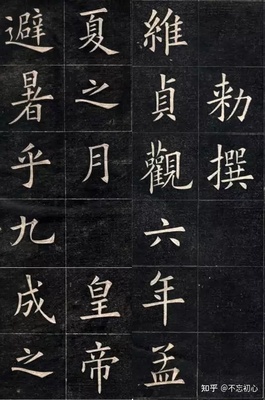 勑撰
維貞觀六年孟
夏之月皇帝
避暑乎九成之
知乎 @不忘初心